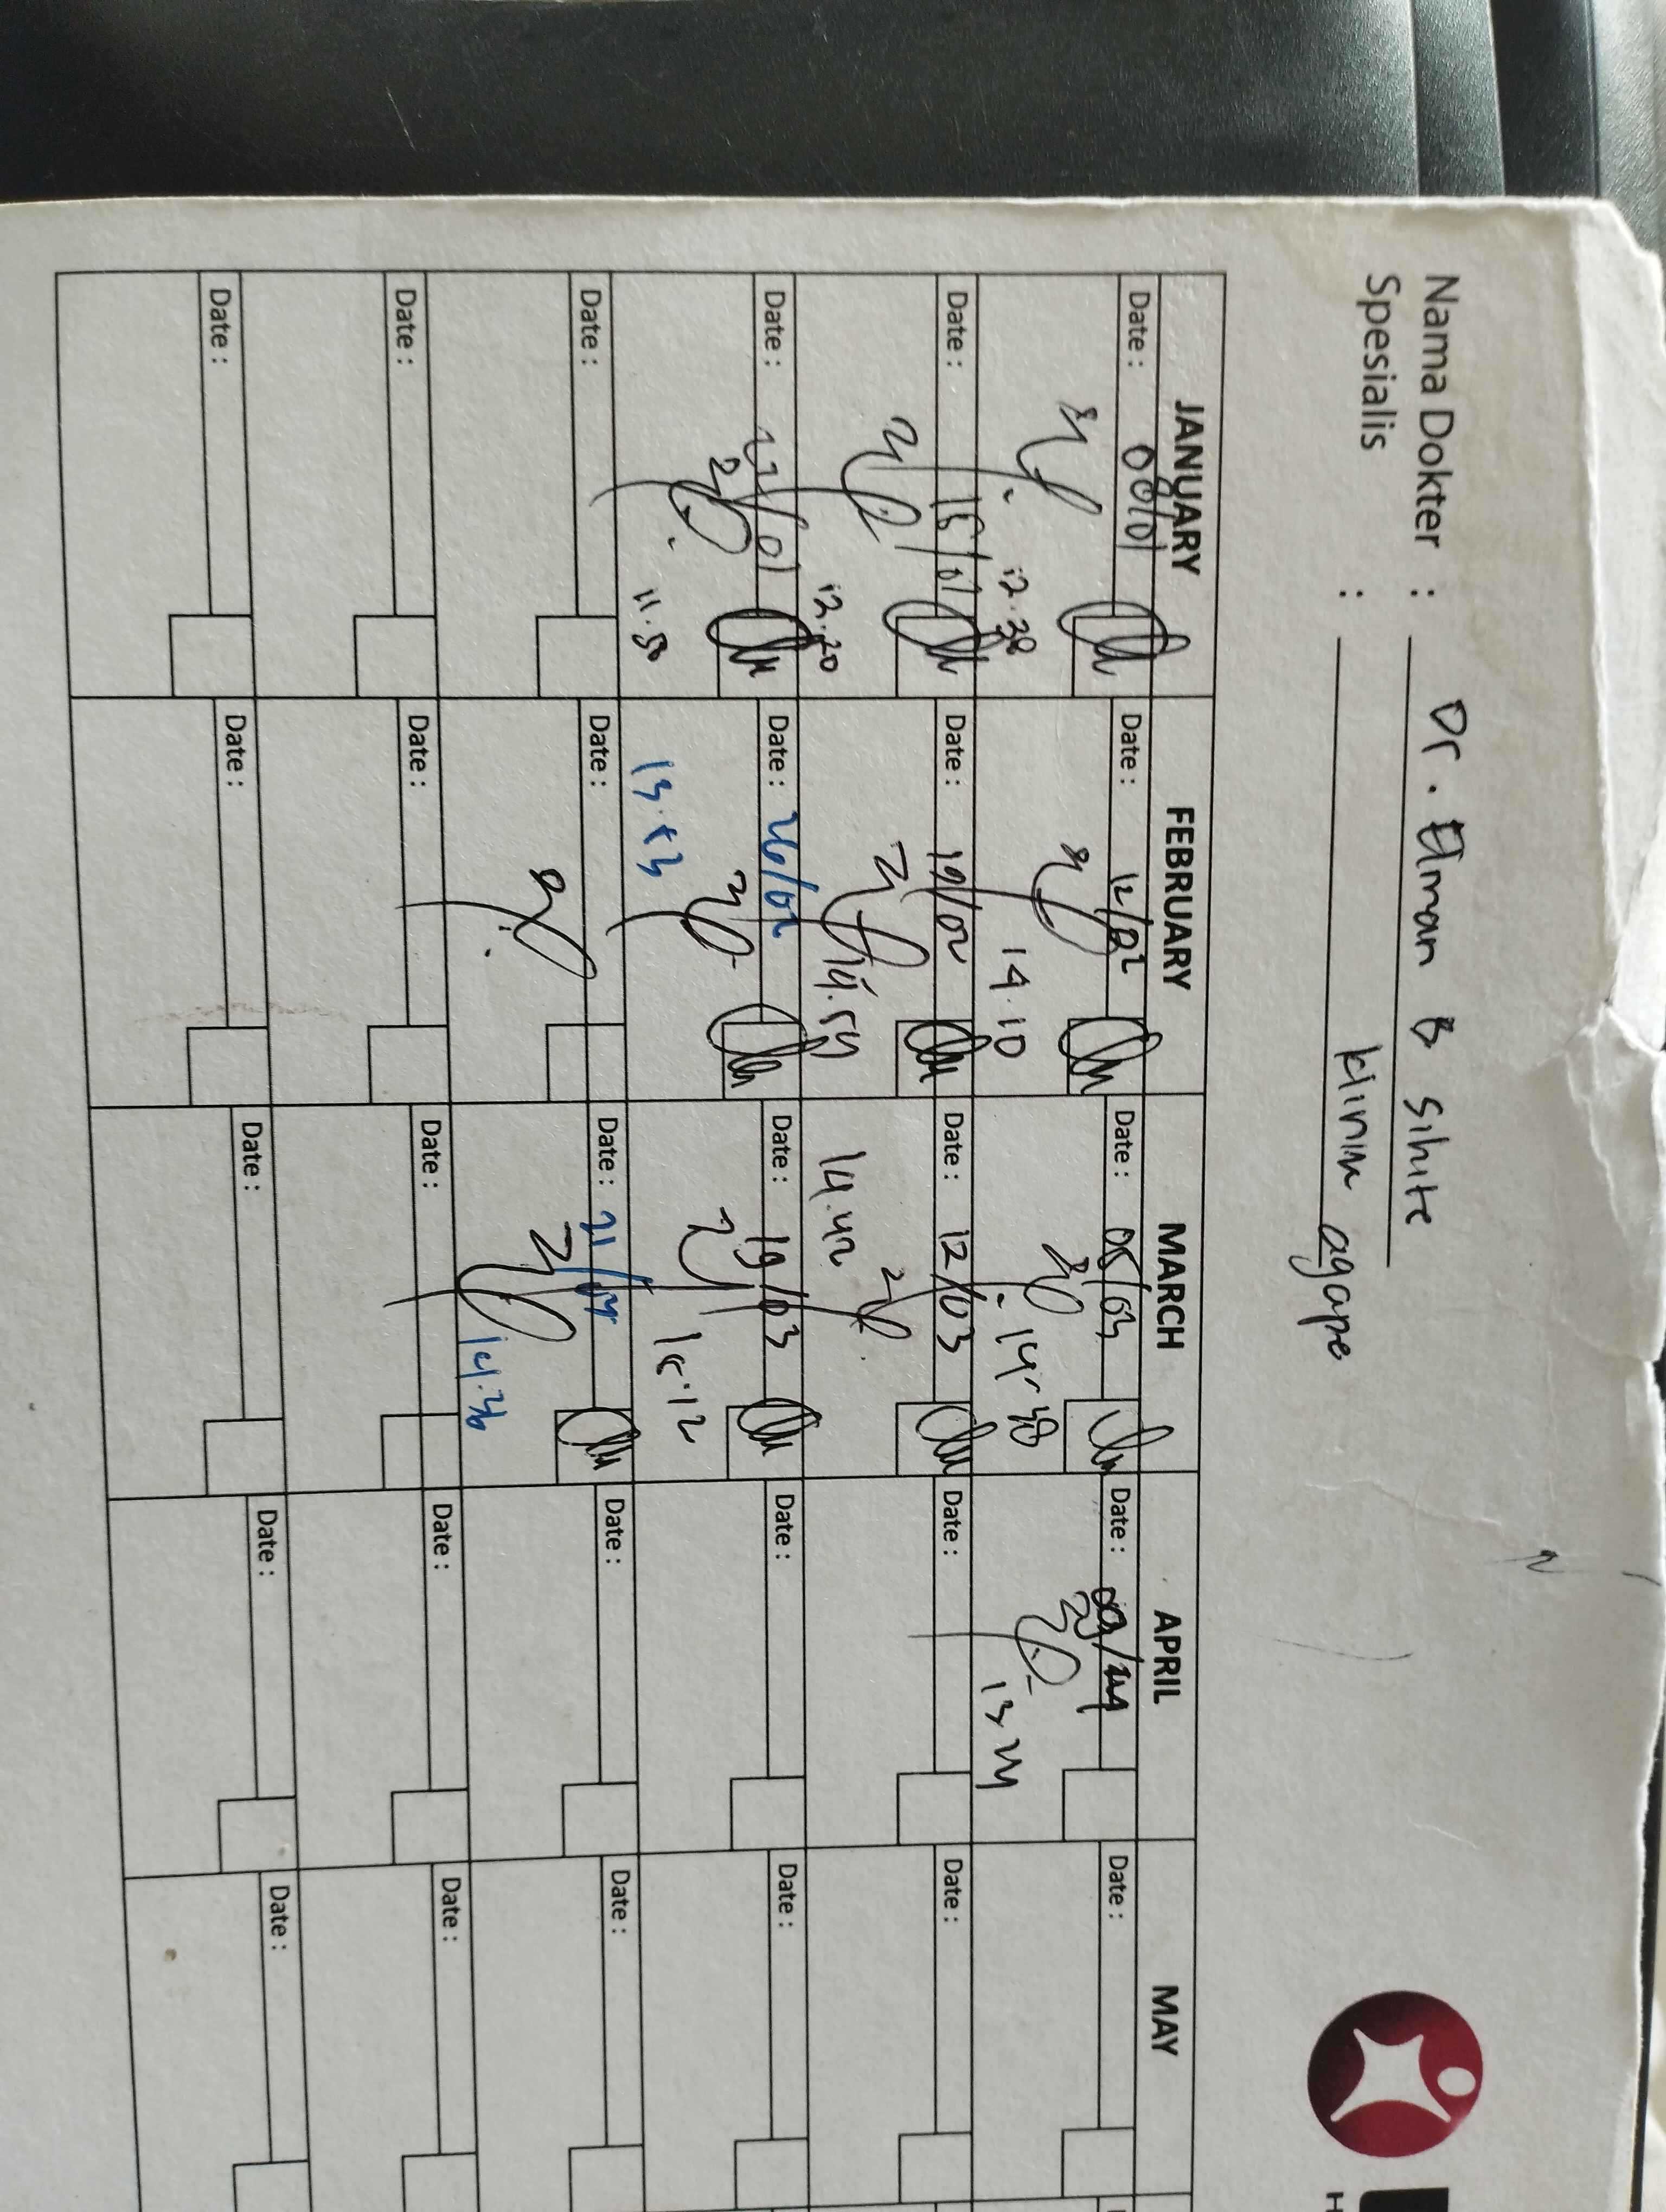 Nama Dokter : Dr. Elman B Sihite
Spesialis : klinik agape
JANUARY FEBRUARY MARCH APRIL MAY
Date : 08/01 Date : 12/02 Date : 05/03 Date : 09/04 Date :
12.38 14.10 14.38 13.24
Date : 15/01 Date : 19/02 Date : 12/03 Date : Date :
12.20 14.59 14.42
Date : 22/01 Date : 26/02 Date : 19/03 Date : Date :
11.50 13.53 15.12
Date : Date : Date : Date : Date :
14.36
Date : Date : Date : Date : Date :
Date : Date : Date : Date : Date :
H